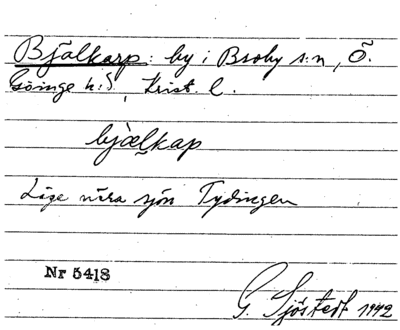 Bjälkarp: by i Broby s:n, Ö.
Göinge h:d, Krist. l.
bjæ̀lkap
Lige nära sjön Tydingen
Nr 5418
G. Sjöstedt 1942